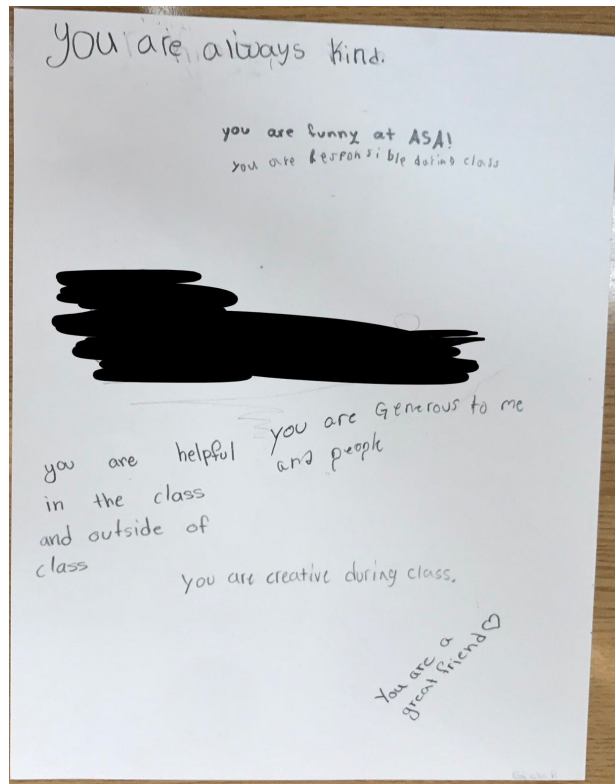 you are always kind.
you are funny at ASA!
you are Responsible during class
you are Generous to me
and people
you are helpful
in the class
and outside of
class
you are creative during class.
You are a
great friend♡